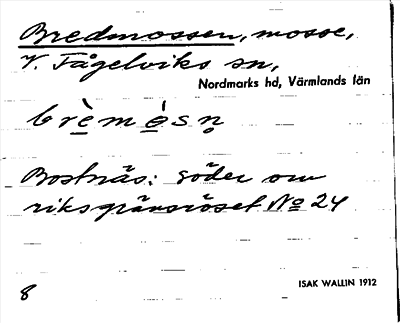 Bredmossen, mosse,
V. Fågelviks sn,
Nordmarks hd, Värmlands län
brèmòsn̥
Bostnäs: söder om
riksgränsröset No 24
ISAK WALLIN 1912
8